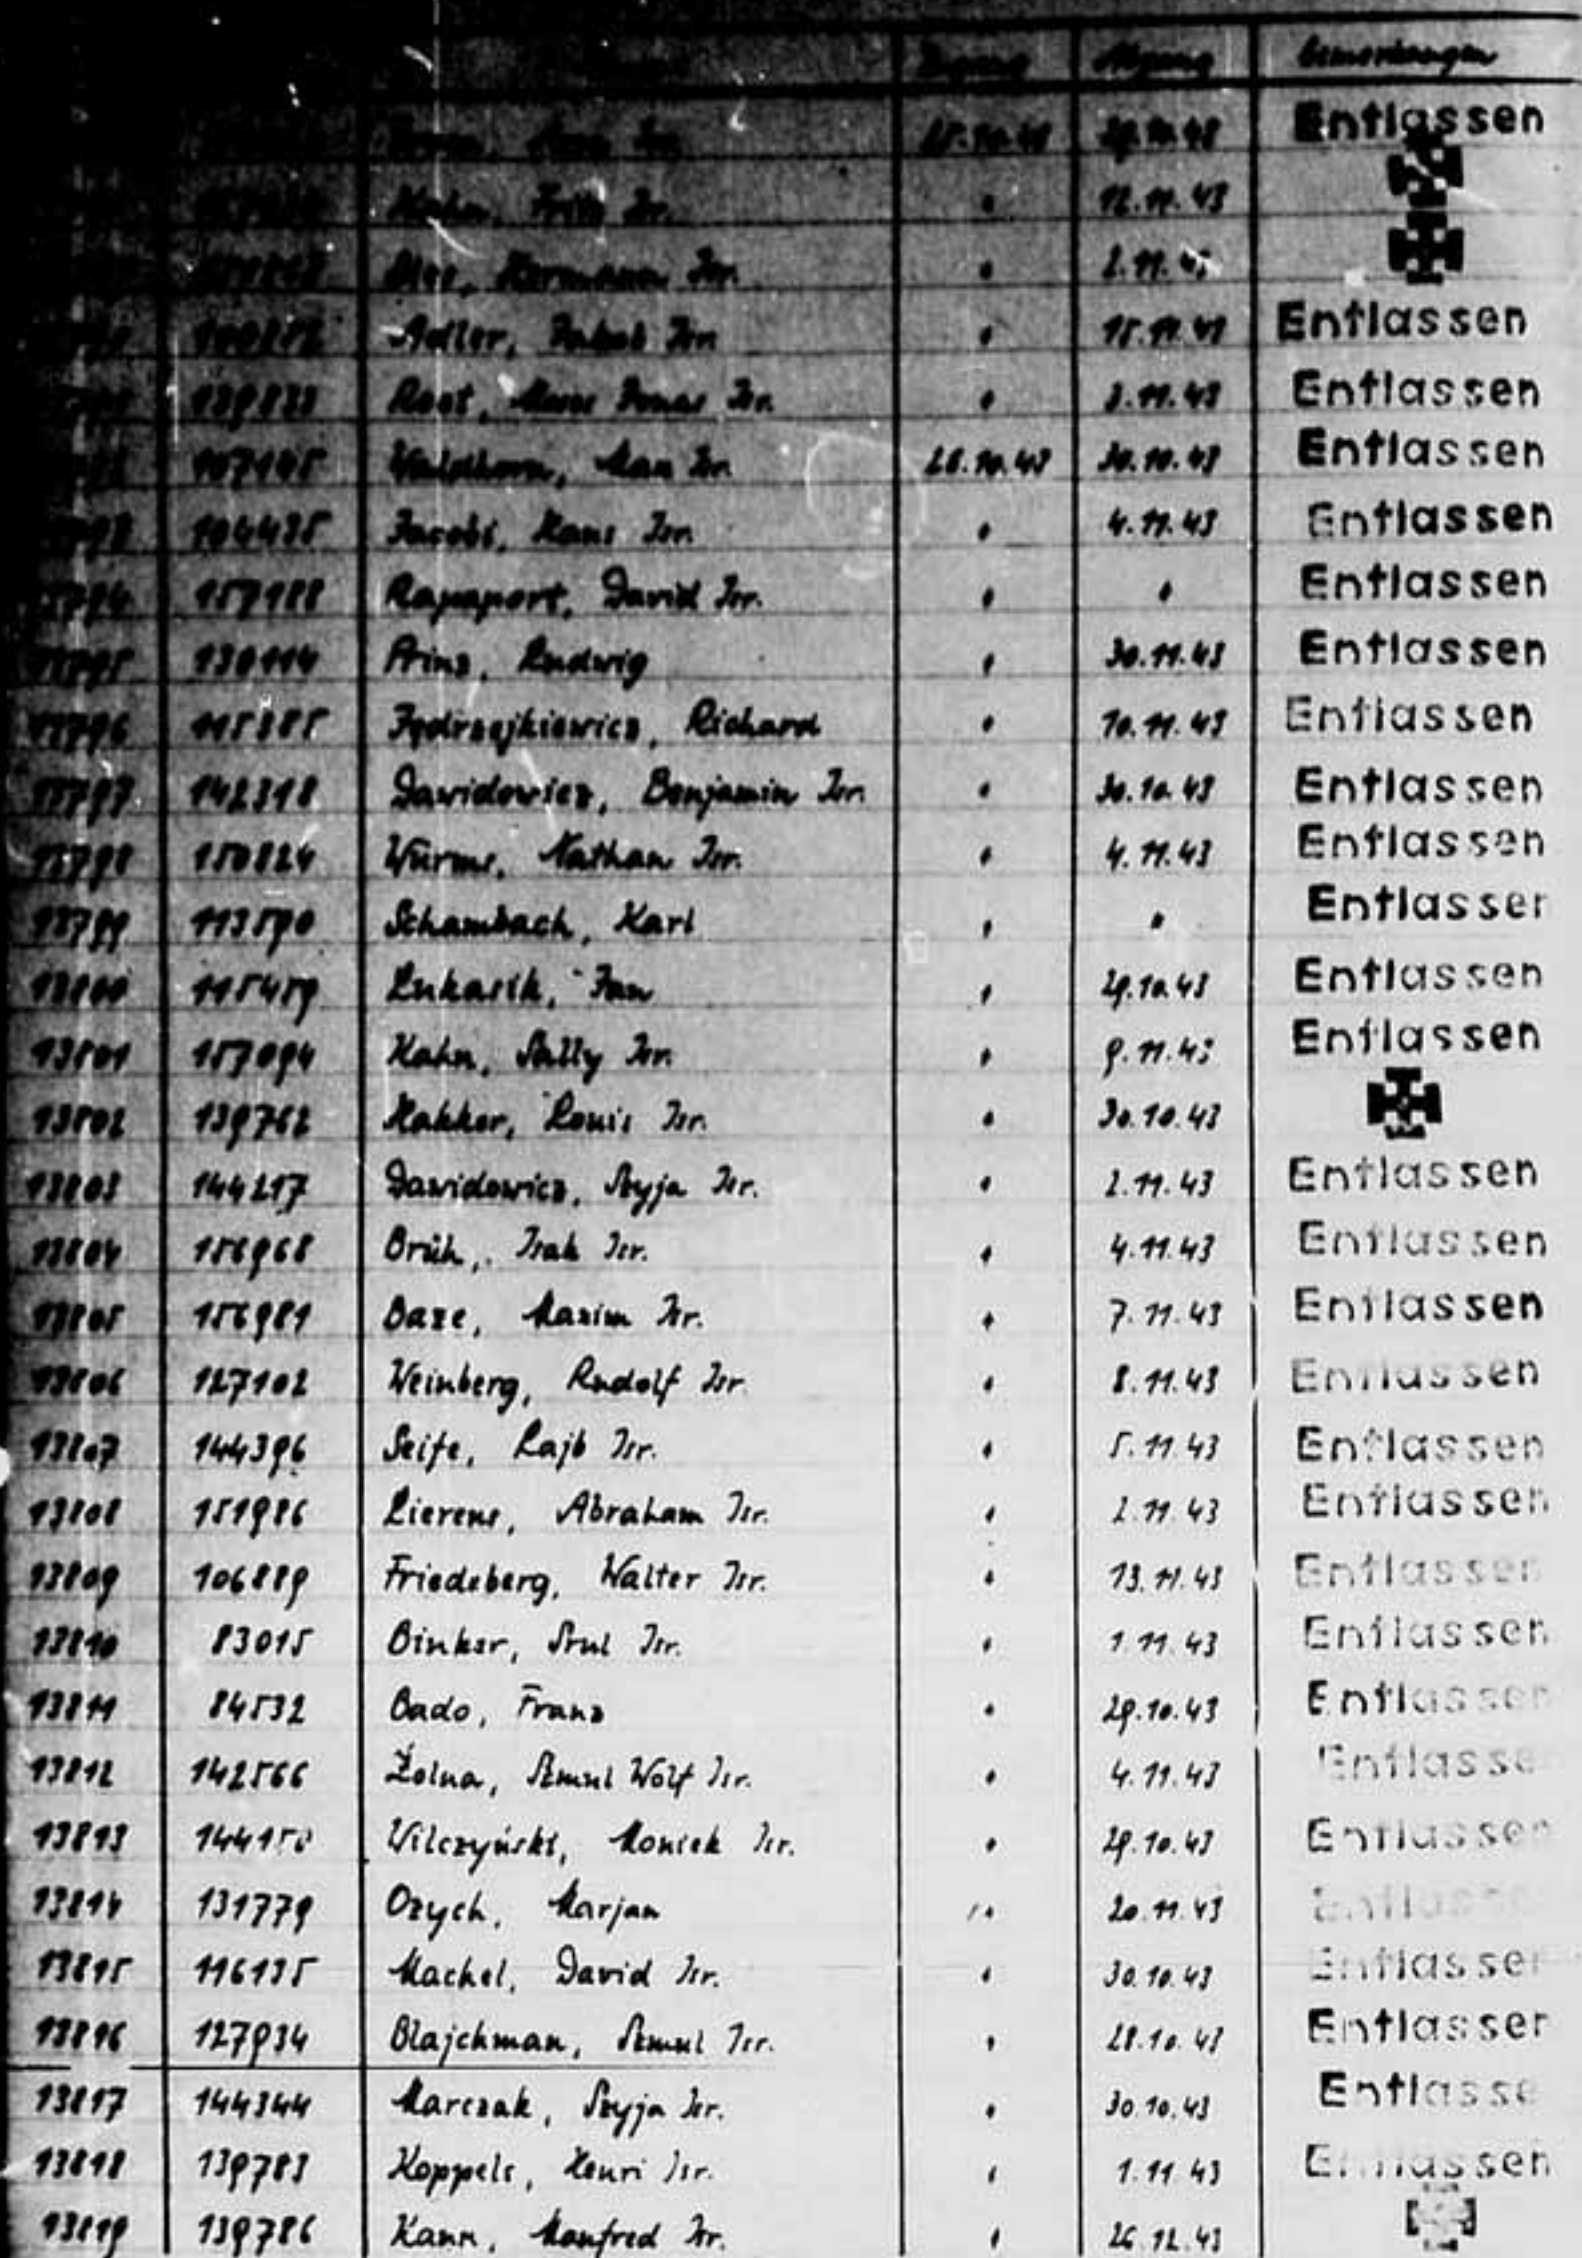 Zugang Abgang Bemerkungen
Entlassen
Fritz Isr. " 12.11.43
Hermann Isr. " 2.11.43
Adler, Isr. " 15.11.43 Entlassen
139833 Isr. " 3.11.43 Entlassen
107145 Waldhorn, Max Isr. 26.10.43 30.10.43 Entlassen
104435 Jacobi, Hans Isr. " 4.11.43 Entlassen
13794 157188 Rapaport, David Isr. " " Entlassen
13795 130114 Prinz, Ludwig " 30.11.43 Entlassen
13796 115385 Jędrzejkiewicz, Richard " 10.11.43 Entlassen
13797 142318 Dawidowicz, Benjamin Isr. " 30.10.43 Entlassen
13798 150824 Würms, Nathan Isr. " 4.11.43 Entlassen
13799 113590 Schambach, Karl " " Entlassen
13800 115459 Lukasik, Jan " 29.10.43 Entlassen
13801 157094 Kahn, Sally Isr. " 9.11.43 Entlassen
13802 139762 Hakker, Louis Isr. " 30.10.43
13803 144217 Dawidowicz, Szyja Isr. " 2.11.43 Entlassen
13804 156968 Brüh, Isak Isr. " 4.11.43 Entlassen
13805 156981 Baze, Maxim Isr. " 7.11.43 Entlassen
13806 127102 Weinberg, Rudolf Isr. " 8.11.43 Entlassen
13807 144396 Seife, Lajb Isr. " 5.11.43 Entlassen
13808 151986 Lierens, Abraham Isr. " 2.11.43 Entlassen
13809 106889 Friedeberg, Walter Isr. " 13.11.43 Entlassen
13810 83015 Binker, Srul Isr. " 1.11.43 Entlassen
13811 84532 Bado, Franz " 29.10.43 Entlassen
13812 142566 Żolna, Szmul Wolf Isr. " 4.11.43 Entlassen
13813 144150 Wilczyński, Moniek Isr. " 29.10.43 Entlassen
13814 131779 Ozych, Marjan " 20.11.43 Entlassen
13815 116135 Machel, David Isr. " 30.10.43 Entlassen
13816 127934 Blajchman, Szmul Isr. " 28.10.43 Entlassen
13817 144344 Marczak, Szyja Isr. " 30.10.43 Entlassen
13818 139783 Koppels, Henri Isr. " 1.11.43 Entlassen
13819 139786 Kann, Manfred Isr. " 26.12.43